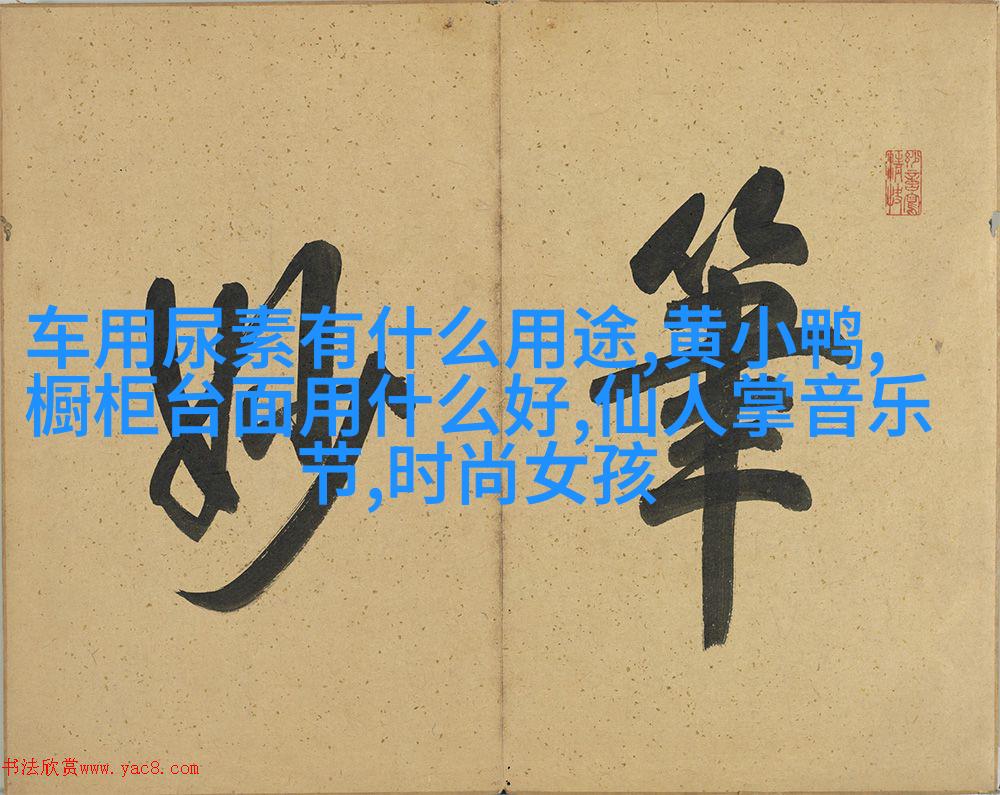 筆
妙
车用尿素有什么用途,黄小鸭,
橱柜台面用什么好,仙人掌音乐
节,时尚女孩
书法欣赏www.yac8.com